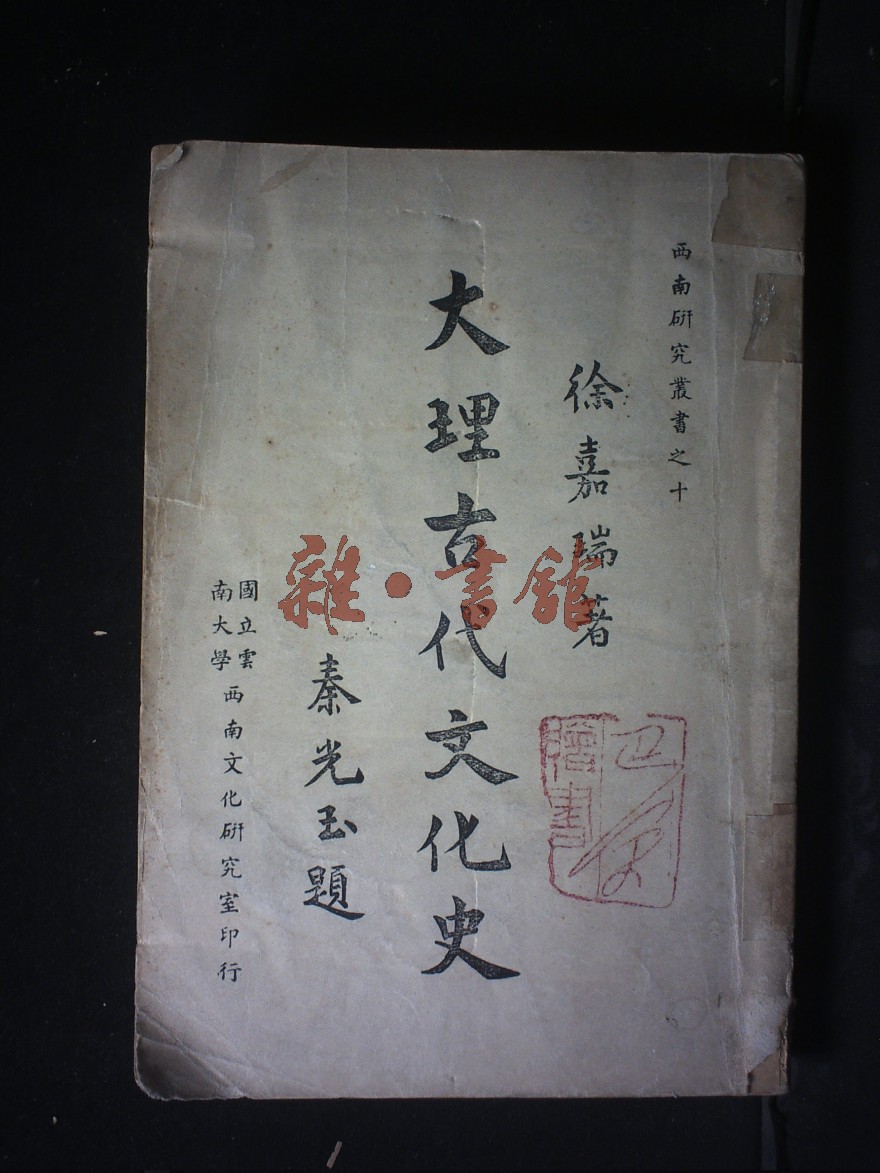 西南研究叢書之十
徐嘉瑞著
大理古代文化史
秦光玉題
國立雲南大學西南文化研究室印行
雜·書館
贈書